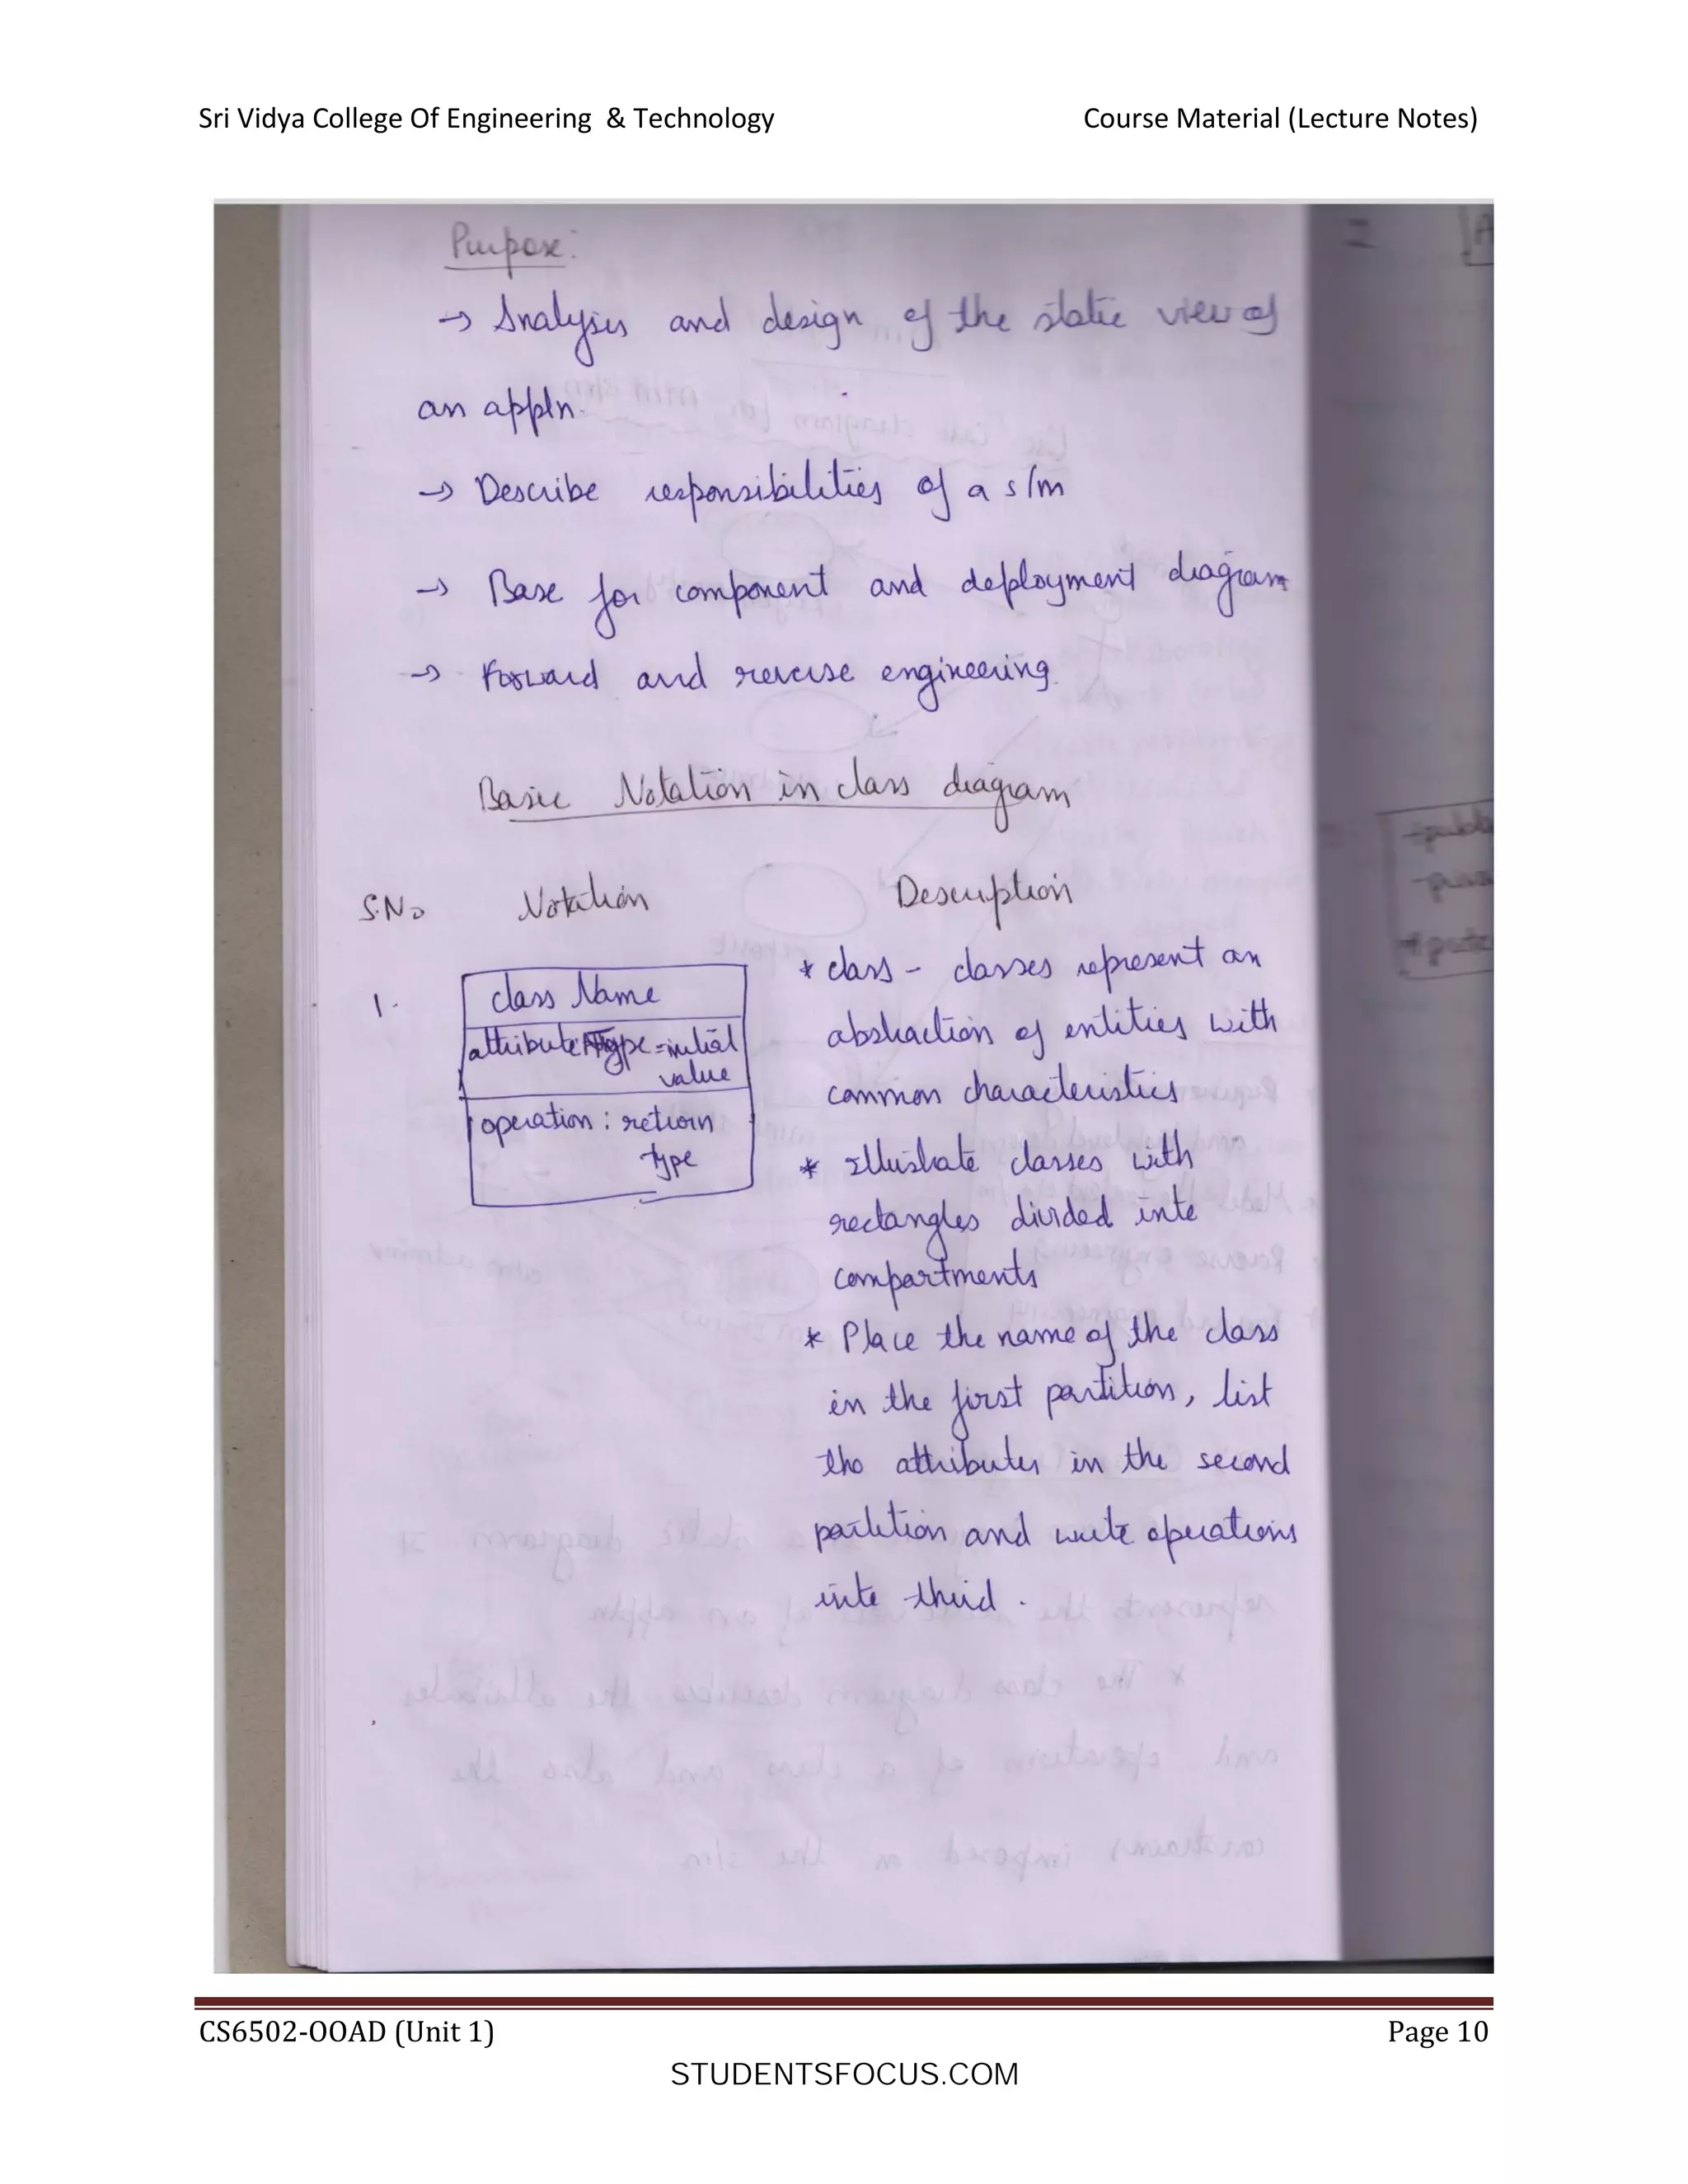 Sri Vidya College Of Engineering & Technology Course Material (Lecture Notes)
Purpose:
→ Analysis and design of the static view of
an appln.
→ Describe responsibilities of a s/m
→ Base for component and deployment diagram
→ Forward and reverse engineering.
Basic Notation in class diagram
S.No Notation Description
1.
class Name
attribute: Type = initial
value
operation : return
type
* class - classes represent an
abstraction of entities with
common characteristics
* Illustrate classes with
rectangles divided into
compartments
* Place the name of the class
in the first partition, list
the attributes in the second
partition and write operations
into third.
CS6502-OOAD (Unit 1) Page 10
STUDENTSFOCUS.COM